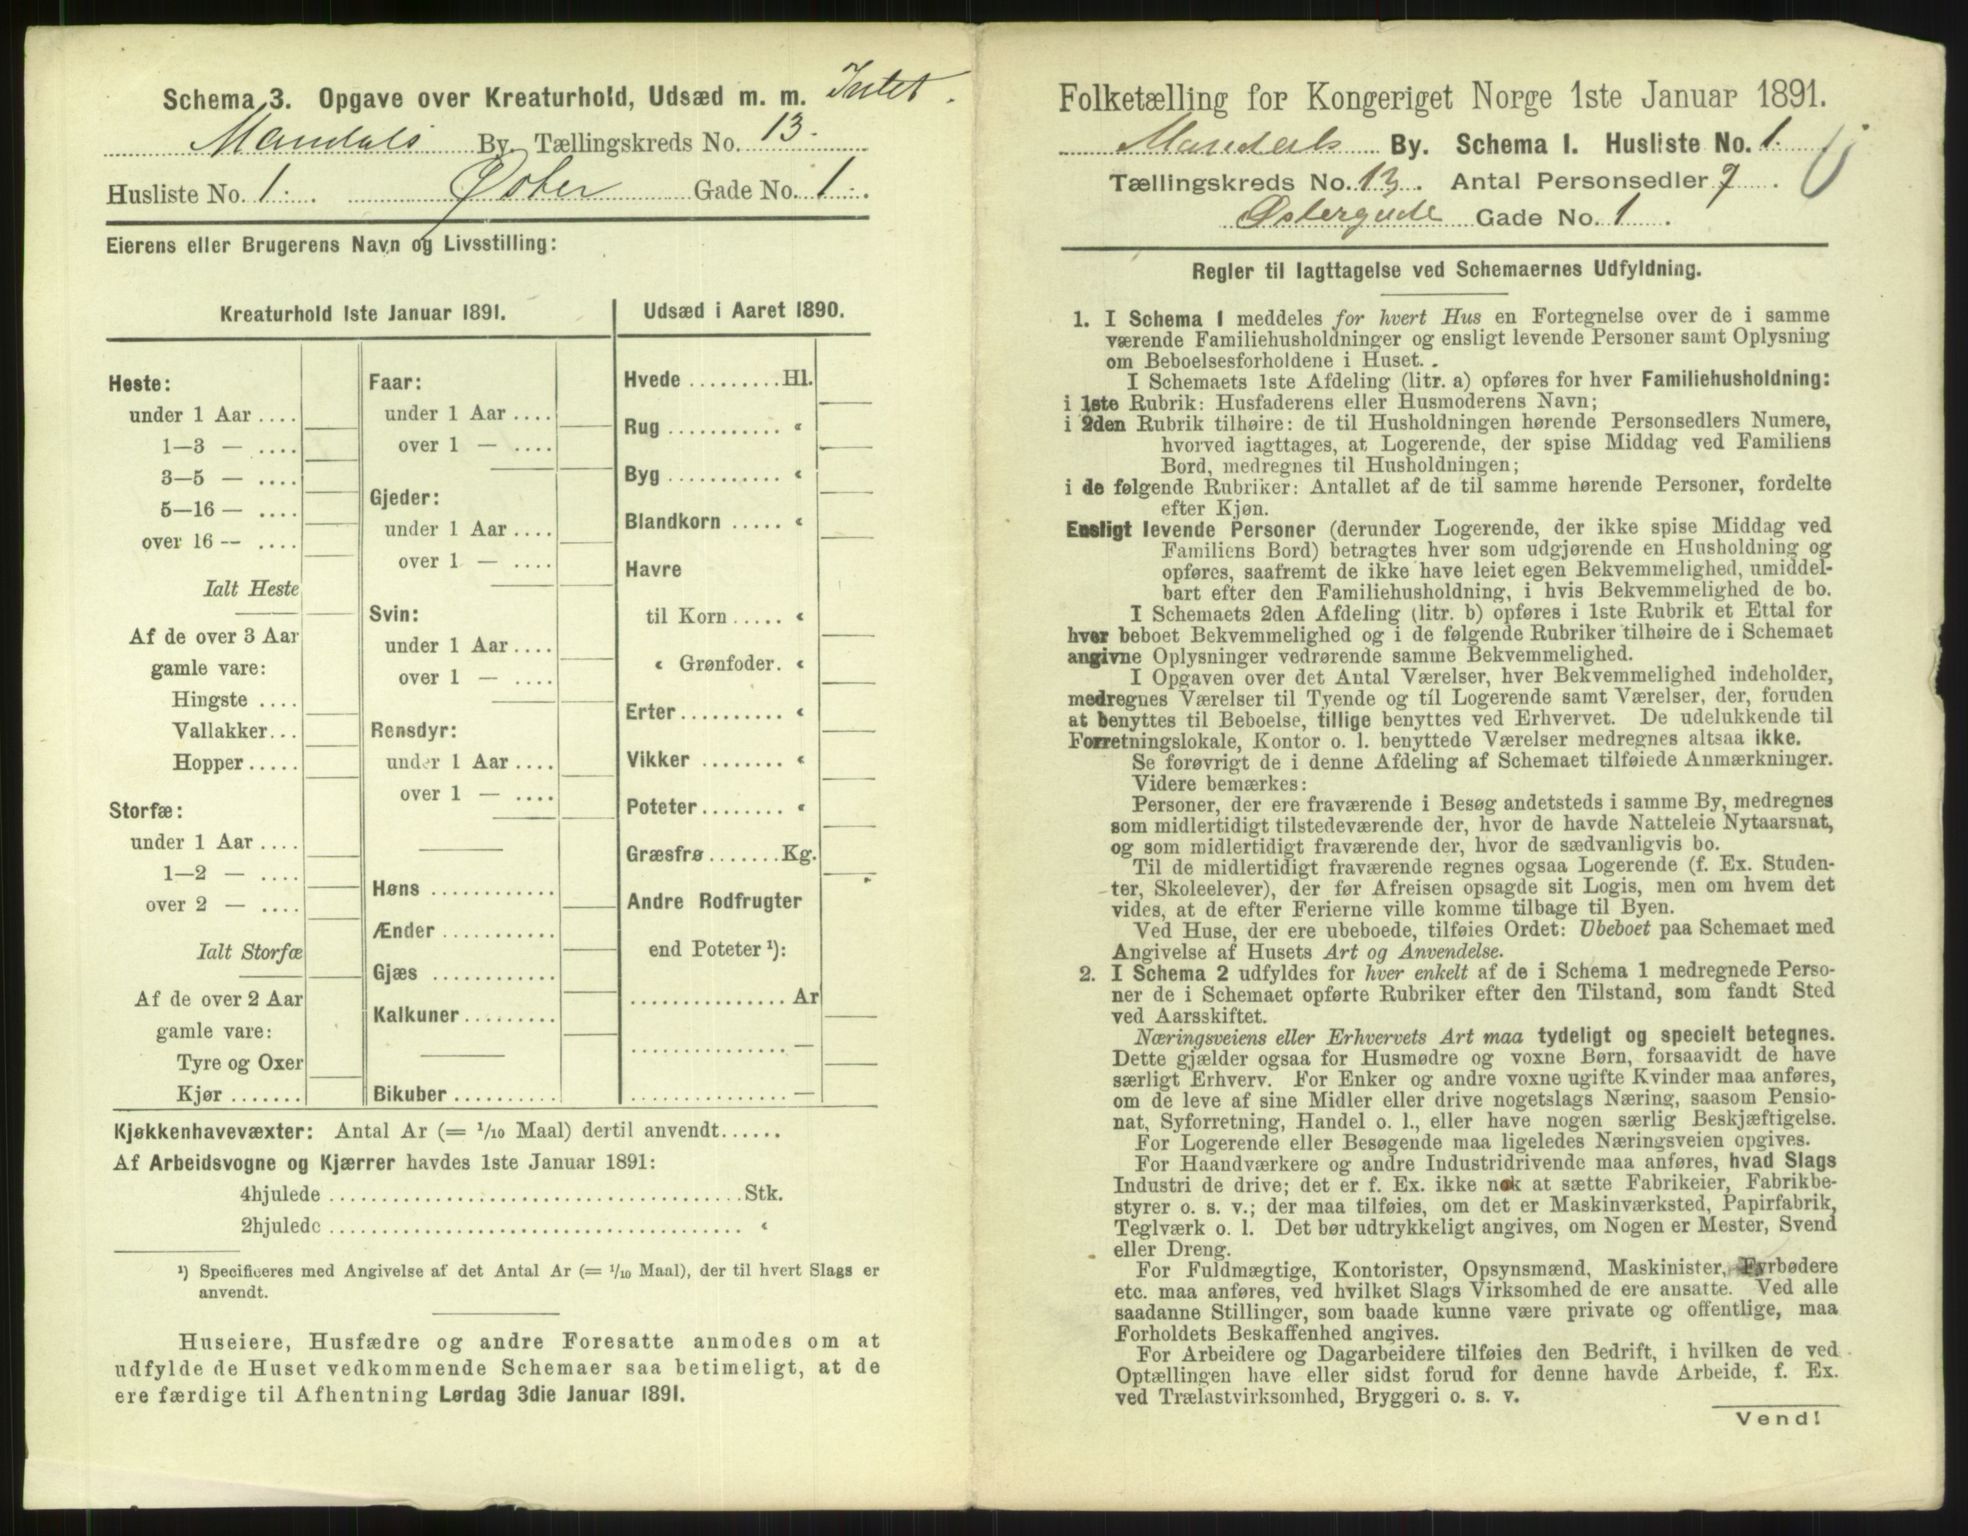 Schema 3. Opgave over Kreaturhold, Udsæd m. m. Intet.
Mandals By. Tællingskreds No. 13.
Husliste No. 1. Øster Gade No. 1.
Eierens eller Brugerens Navn og Livsstilling:
Kreaturhold 1ste Januar 1891.
Heste:
under 1 Aar ....
1—3 — ....
3—5 — ....
5—16 — ....
over 16 — ....
Ialt Heste
Af de over 3 Aar
gamle vare:
Hingste ....
Vallakker...
Hopper.....
Storfæ:
under 1 Aar ....
1—2 — ....
over 2 — ....
Ialt Storfæ
Af de over 2 Aar
gamle vare:
Tyre og Oxer
Kjør .......
Faar:
under 1 Aar ....
over 1 — ....
Gjeder:
under 1 Aar ....
over 1 — ....
Svin:
under 1 Aar ....
over 1 — ....
Rensdyr:
under 1 Aar ....
over 1 — ....
Høns ............
Ænder ...........
Gjæs ............
Kalkuner.........
Bikuber ..........
Udsæd i Aaret 1890.
Hvede .........Hl.
Rug ........... «
Byg ........... «
Blandkorn ..... «
Havre
til Korn ..... «
« Grønfoder. «
Erter.......... «
Vikker ........ «
Poteter........ «
Græsfrø .......Kg.
Andre Rodfrugter
end Poteter ¹):
............... Ar
............... —
............... —
Kjøkkenhavevæxter: Antal Ar (= 1/10 Maal) dertil anvendt......
Af Arbeidsvogne og Kjærrer havdes 1ste Januar 1891:
4hjulede ........................................Stk.
2hjulede ........................................ «
¹) Specificeres med Angivelse af det Antal Ar (= 1/10 Maal), der til hvert Slags er
anvendt.
Huseiere, Husfædre og andre Foresatte anmodes om at
udfylde de Huset vedkommende Schemaer saa betimeligt, at de
ere færdige til Afhentning Lørdag 3die Januar 1891.
Folketælling for Kongeriget Norge 1ste Januar 1891.
Mandals By. Schema I. Husliste No. 1.
Tællingskreds No. 13. Antal Personsedler 7.
Østergade Gade No. 1.
Regler til Iagttagelse ved Schemaernes Udfyldning.
1. I Schema 1 meddeles for hvert Hus en Fortegnelse over de i samme
værende Familiehusholdninger og ensligt levende Personer samt Oplysning
om Beboelsesforholdene i Huset.
I Schemaets 1ste Afdeling (litr. a) opføres for hver Familiehusholdning:
i 1ste Rubrik: Husfaderens eller Husmoderens Navn;
i 2den Rubrik tilhøire: de til Husholdningen hørende Personsedlers Numere,
hvorved iagttages, at Logerende, der spise Middag ved Familiens
Bord, medregnes til Husholdningen;
i de følgende Rubriker: Antallet af de til samme hørende Personer, fordelte
efter Kjøn.
Ensligt levende Personer (derunder Logerende, der ikke spise Middag ved
Familiens Bord) betragtes hver som udgjørende en Husholdning og
opføres, saafremt de ikke have leiet egen Bekvemmelighed, umiddel-
bart efter den Familiehusholdning, i hvis Bekvemmelighed de bo.
I Schemaets 2den Afdeling (litr. b) opføres i 1ste Rubrik et Ettal for
hver beboet Bekvemmelighed og i de følgende Rubriker tilhøire de i Schemaet
angivne Oplysninger vedrørende samme Bekvemmelighed.
I Opgaven over det Antal Værelser, hver Bekvemmelighed indeholder,
medregnes Værelser til Tyende og til Logerende samt Værelser, der, foruden
at benyttes til Beboelse, tillige benyttes ved Erhvervet. De udelukkende til
Forretningslokale, Kontor o. l. benyttede Værelser medregnes altsaa ikke.
Se forøvrigt de i denne Afdeling af Schemaet tilføiede Anmærkninger.
Videre bemærkes:
Personer, der ere fraværende i Besøg andetsteds i samme By, medregnes
som midlertidigt tilstedeværende der, hvor de havde Natteleie Nytaarsnat,
og som midlertidigt fraværende der, hvor de sædvanligvis bo.
Til de midlertidigt fraværende regnes ogsaa Logerende (f. Ex. Studen-
ter, Skoleelever), der før Afreisen opsagde sit Logis, men om hvem det
vides, at de efter Ferierne ville komme tilbage til Byen.
Ved Huse, der ere ubeboede, tilføies Ordet: Ubeboet paa Schemaet med
Angivelse af Husets Art og Anvendelse.
2. I Schema 2 udfyldes for hver enkelt af de i Schema 1 medregnede Perso-
ner de i Schemaet opførte Rubriker efter den Tilstand, som fandt Sted
ved Aarsskiftet.
Næringsveiens eller Erhvervets Art maa tydeligt og specielt betegnes.
Dette gjælder ogsaa for Husmødre og voxne Børn, forsaavidt de have
særligt Erhverv. For Enker og andre voxne ugifte Kvinder maa anføres,
om de leve af sine Midler eller drive nogetslags Næring, saasom Pensio-
nat, Syforretning, Handel o. l., eller have nogen særlig Beskjæftigelse.
For Logerende eller Besøgende maa ligeledes Næringsveien opgives.
For Haandværkere og andre Industridrivende maa anføres, hvad Slags
Industri de drive; det er f. Ex. ikke nok at sætte Fabrikeier, Fabrikbe-
styrer o. s. v.; der maa tilføies, om det er Maskinværksted, Papirfabrik,
Teglværk o. l. Det bør udtrykkeligt angives, om Nogen er Mester, Svend
eller Dreng.
For Fuldmægtige, Kontorister, Opsynsmænd, Maskinister, Fyrbødere
etc. maa anføres, ved hvilket Slags Virksomhed de ere ansatte. Ved alle
saadanne Stillinger, som baade kunne være private og offentlige, maa
Forholdets Beskaffenhed angives.
For Arbeidere og Dagarbeidere tilføies den Bedrift, i hvilken de ved
Optællingen have eller sidst forud for denne havde Arbeide, f. Ex.
ved Trælastvirksomhed, Bryggeri o. s. v.
Vend!